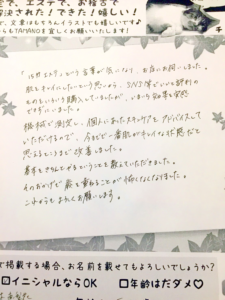 で、エステで、お稽古で
解決された！できた！嬉しい！
で、文章はもちろんイラストでも嬉しいです♪
らもTAMANOを宜しくお願いいたします！
という言葉が気になり、お店にお伺いしました。
肌をキレイにしたいという思いから、SNS等でいいと評判の
ものをいろいろ購入していましたが、いまいち効果を実感
できずにいました。
機械で測定し、個人にあったスキンケアをアドバイスして
いただけるので、今までで一番肌がキレイな状態だと
思えるところまで改善しました。
基本をきちんとやるということを教えていただきました。
そのおかげで歳を重ねることが怖くなくなりました。
これからもよろしくお願いします。
で掲載する場合、お名前を載せてもよろしいでしょうか？
□イニシャルならOK　□年齢はだダメ♡